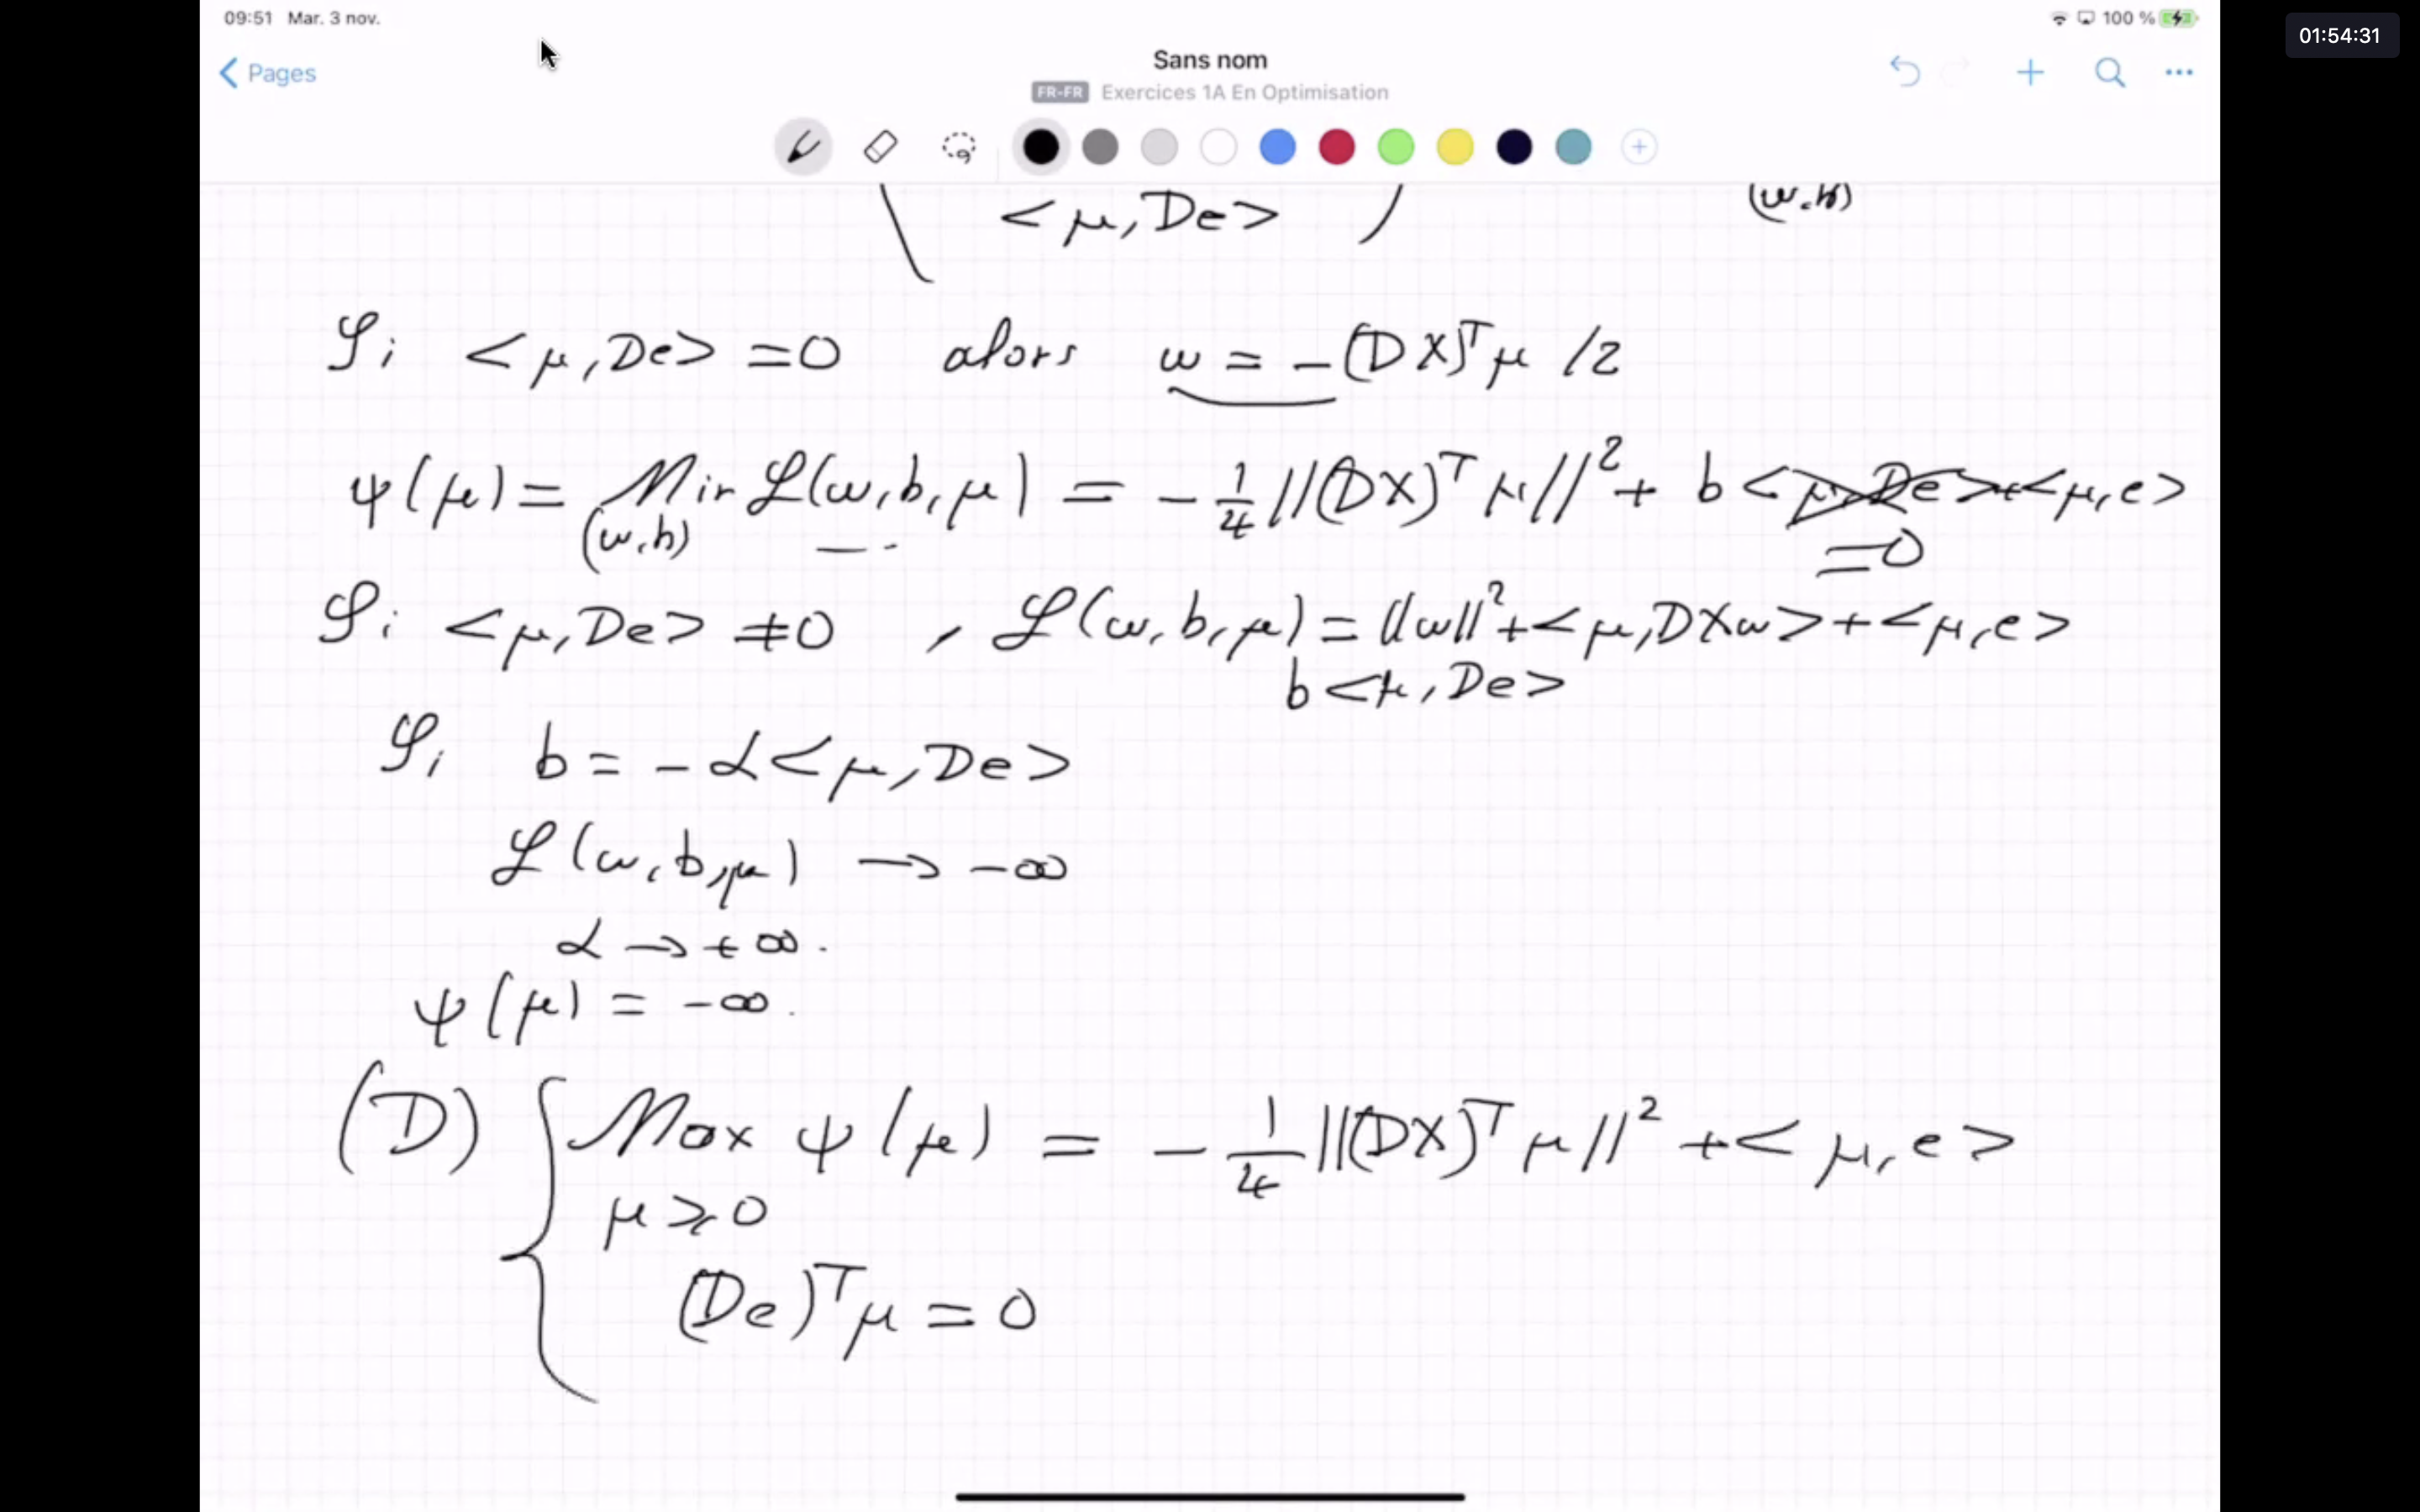 09:51 Mar. 3 nov.
100 %
01:54:31
Pages
Sans nom
FR-FR Exercices 1A En Optimisation
< μ, De >
(w, b)
Si < μ, De > = 0 alors w = -(DX)ᵀ μ /2
ψ(μ) = Min ℒ(w, b, μ) = - 1/4 ||(DX)ᵀ μ||² + b < μ, De > + < μ, e >
(w, b)
= 0
Si < μ, De > ≠ 0 , ℒ(w, b, μ) = ||w||² + < μ, DXw > + < μ, e >
b < μ, De >
Si b = - α < μ, De >
ℒ(w, b, μ) → -∞
α → +∞.
ψ(μ) = -∞.
(D) { Max ψ(μ) = - 1/4 ||(DX)ᵀ μ||² + < μ, e >
μ ⩾ 0
(De)ᵀ μ = 0